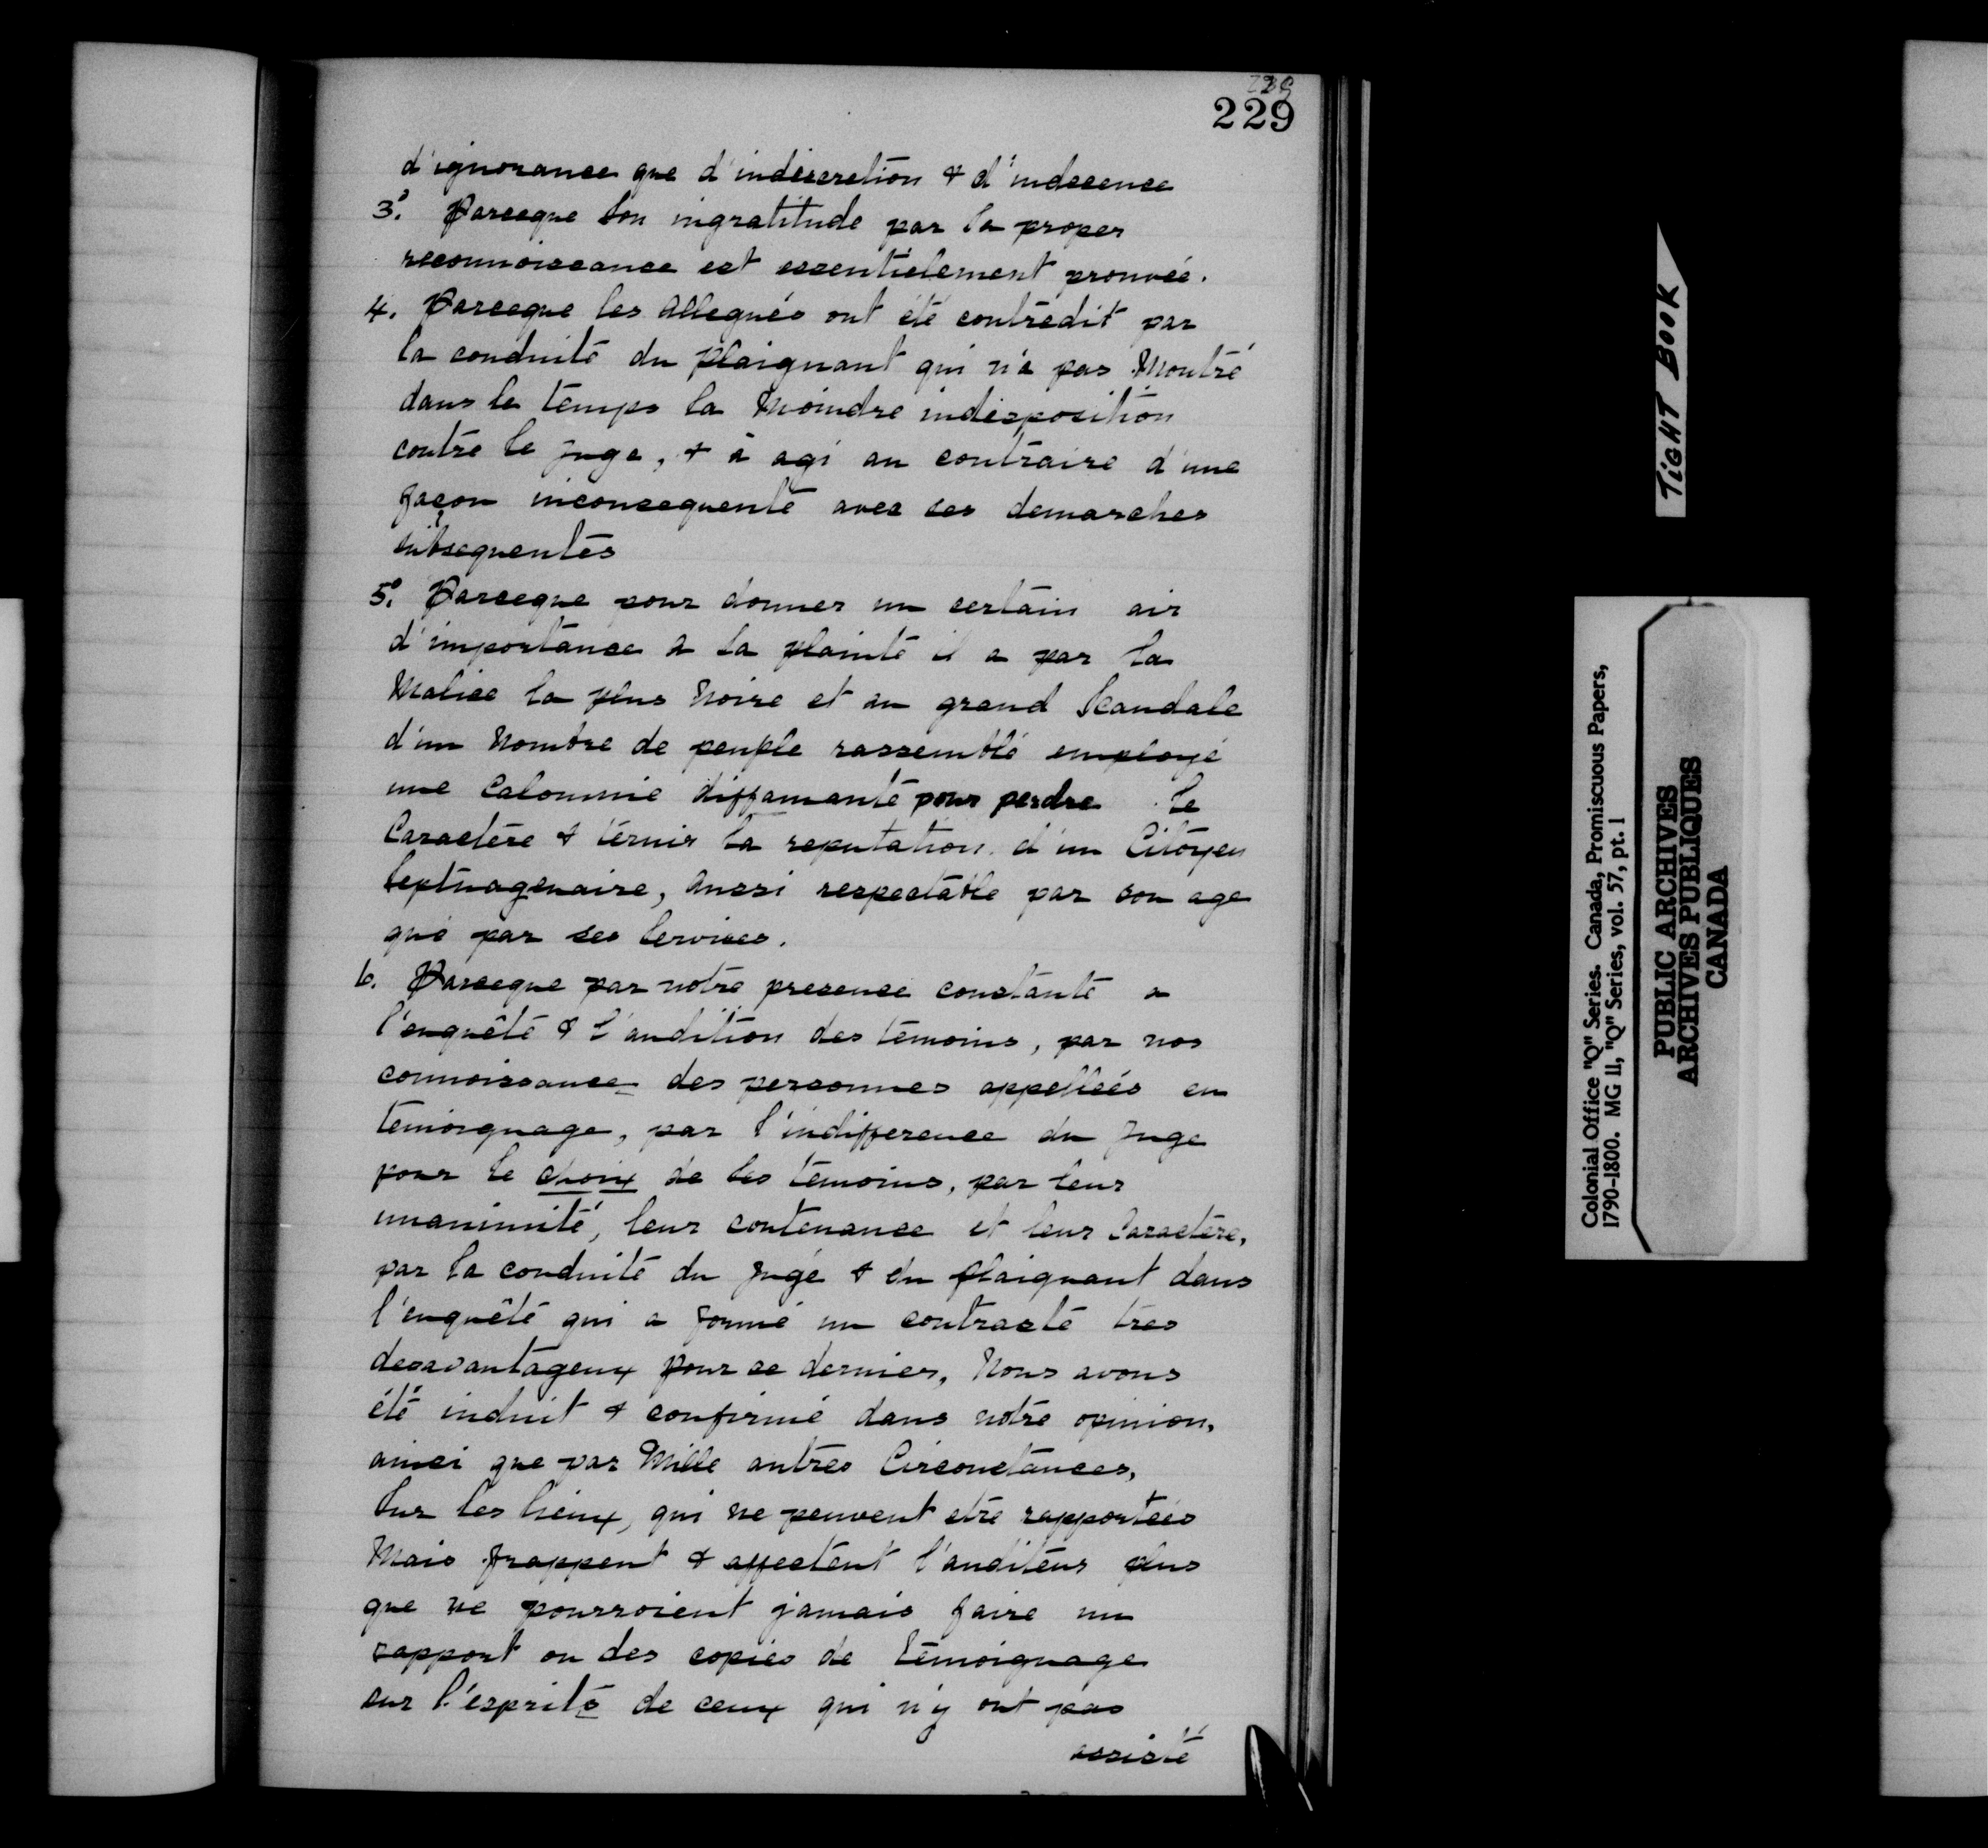 229
d'ignorance que d'indiscretion & d'indecence
3º. Parceque Son ingratitude par Sa proper
reconnoissance est essentielement prouvée.
4. Parceque les allegués ont été contredit par
la conduite du plaignant qui n'a pas Montré
dans le temps la Moindre indisposition
contre le juge, & a agi au contraire d'une
façon inconsequente avec ses demarches
subsequentes
5º. Parceque pour donner un certain air
d'importance a Sa plainte il a par la
Malice la plus Noire et au grand Scandale
d'un Nombre de peuple rassemblé employé
une Calomnie diffamante pour perdre le
Caractère & ternir la reputation d'un Citoyen
Septuagenaire, Aussi respectable par son age
que par ses Services.
6. Parceque par notre presence constante a
l'enquête & l'audition des temoins, par nos
connoissance des personnes appellées en
temoignage, par l'indifference du Juge
pour le choix de Ses temoins, par leur
unanimité, leur contenance et leur Caractère,
par la conduite du Juge & du plaignant dans
l'enquête qui a formé un contraste tres
desavantageux pour ce dernier, Nous avons
été induit & confirmé dans notre opinion,
ainsi que par Mille autres Circonstances,
Sur les lieux, qui ne peuvent etre rapportées
Mais frappent & affectent l'auditeur plus
que ne pourroient jamais faire un
rapport ou des copies de temoignage
sur l'esprits de ceux qui n'y ont pas
assisté
TIGHT BOOK
Colonial Office "Q" Series. Canada, Promiscuous Papers,
1790-1800. MG 11, "Q" Series, vol. 57, pt. 1
PUBLIC ARCHIVES
ARCHIVES PUBLIQUES
CANADA